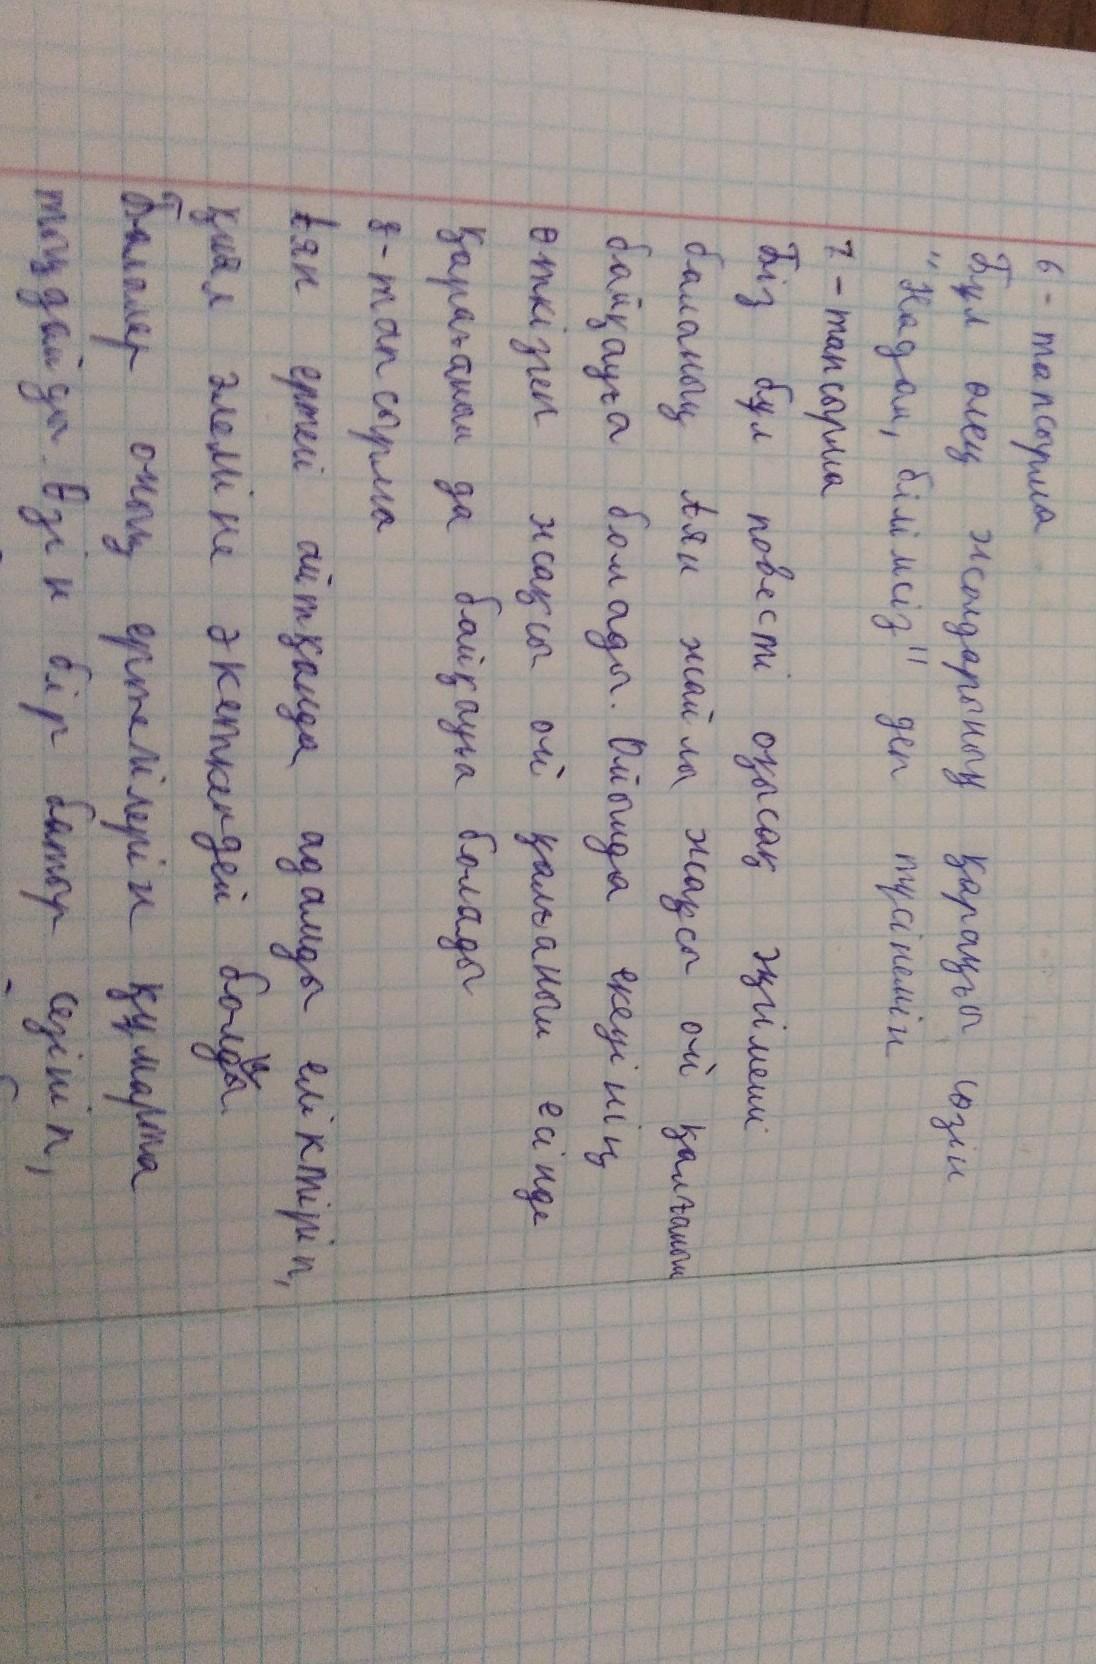 6 - тапсырма
Бұл өлең жолдарының қараңғы сөзін
"Надан, білімсіз" деп түсінемін
7 - тапсырма
Біз бұл повесті оқысақ әңгімеші
баланың Аян жайлы жақсы ой қалғанын
байқауға болады. Ойымда екеуінің
өткізген жақсы ой қалғанын есінде
Қарағанын да байқауға болады
8 - тапсырма
Аян ертегі айтқанда адамды еліктіріп,
қиял әлеміне әкеткендей болды.
Балалар оның ертегілерін құмарта
тыңдайды. Өзін бір батыр сезініп,